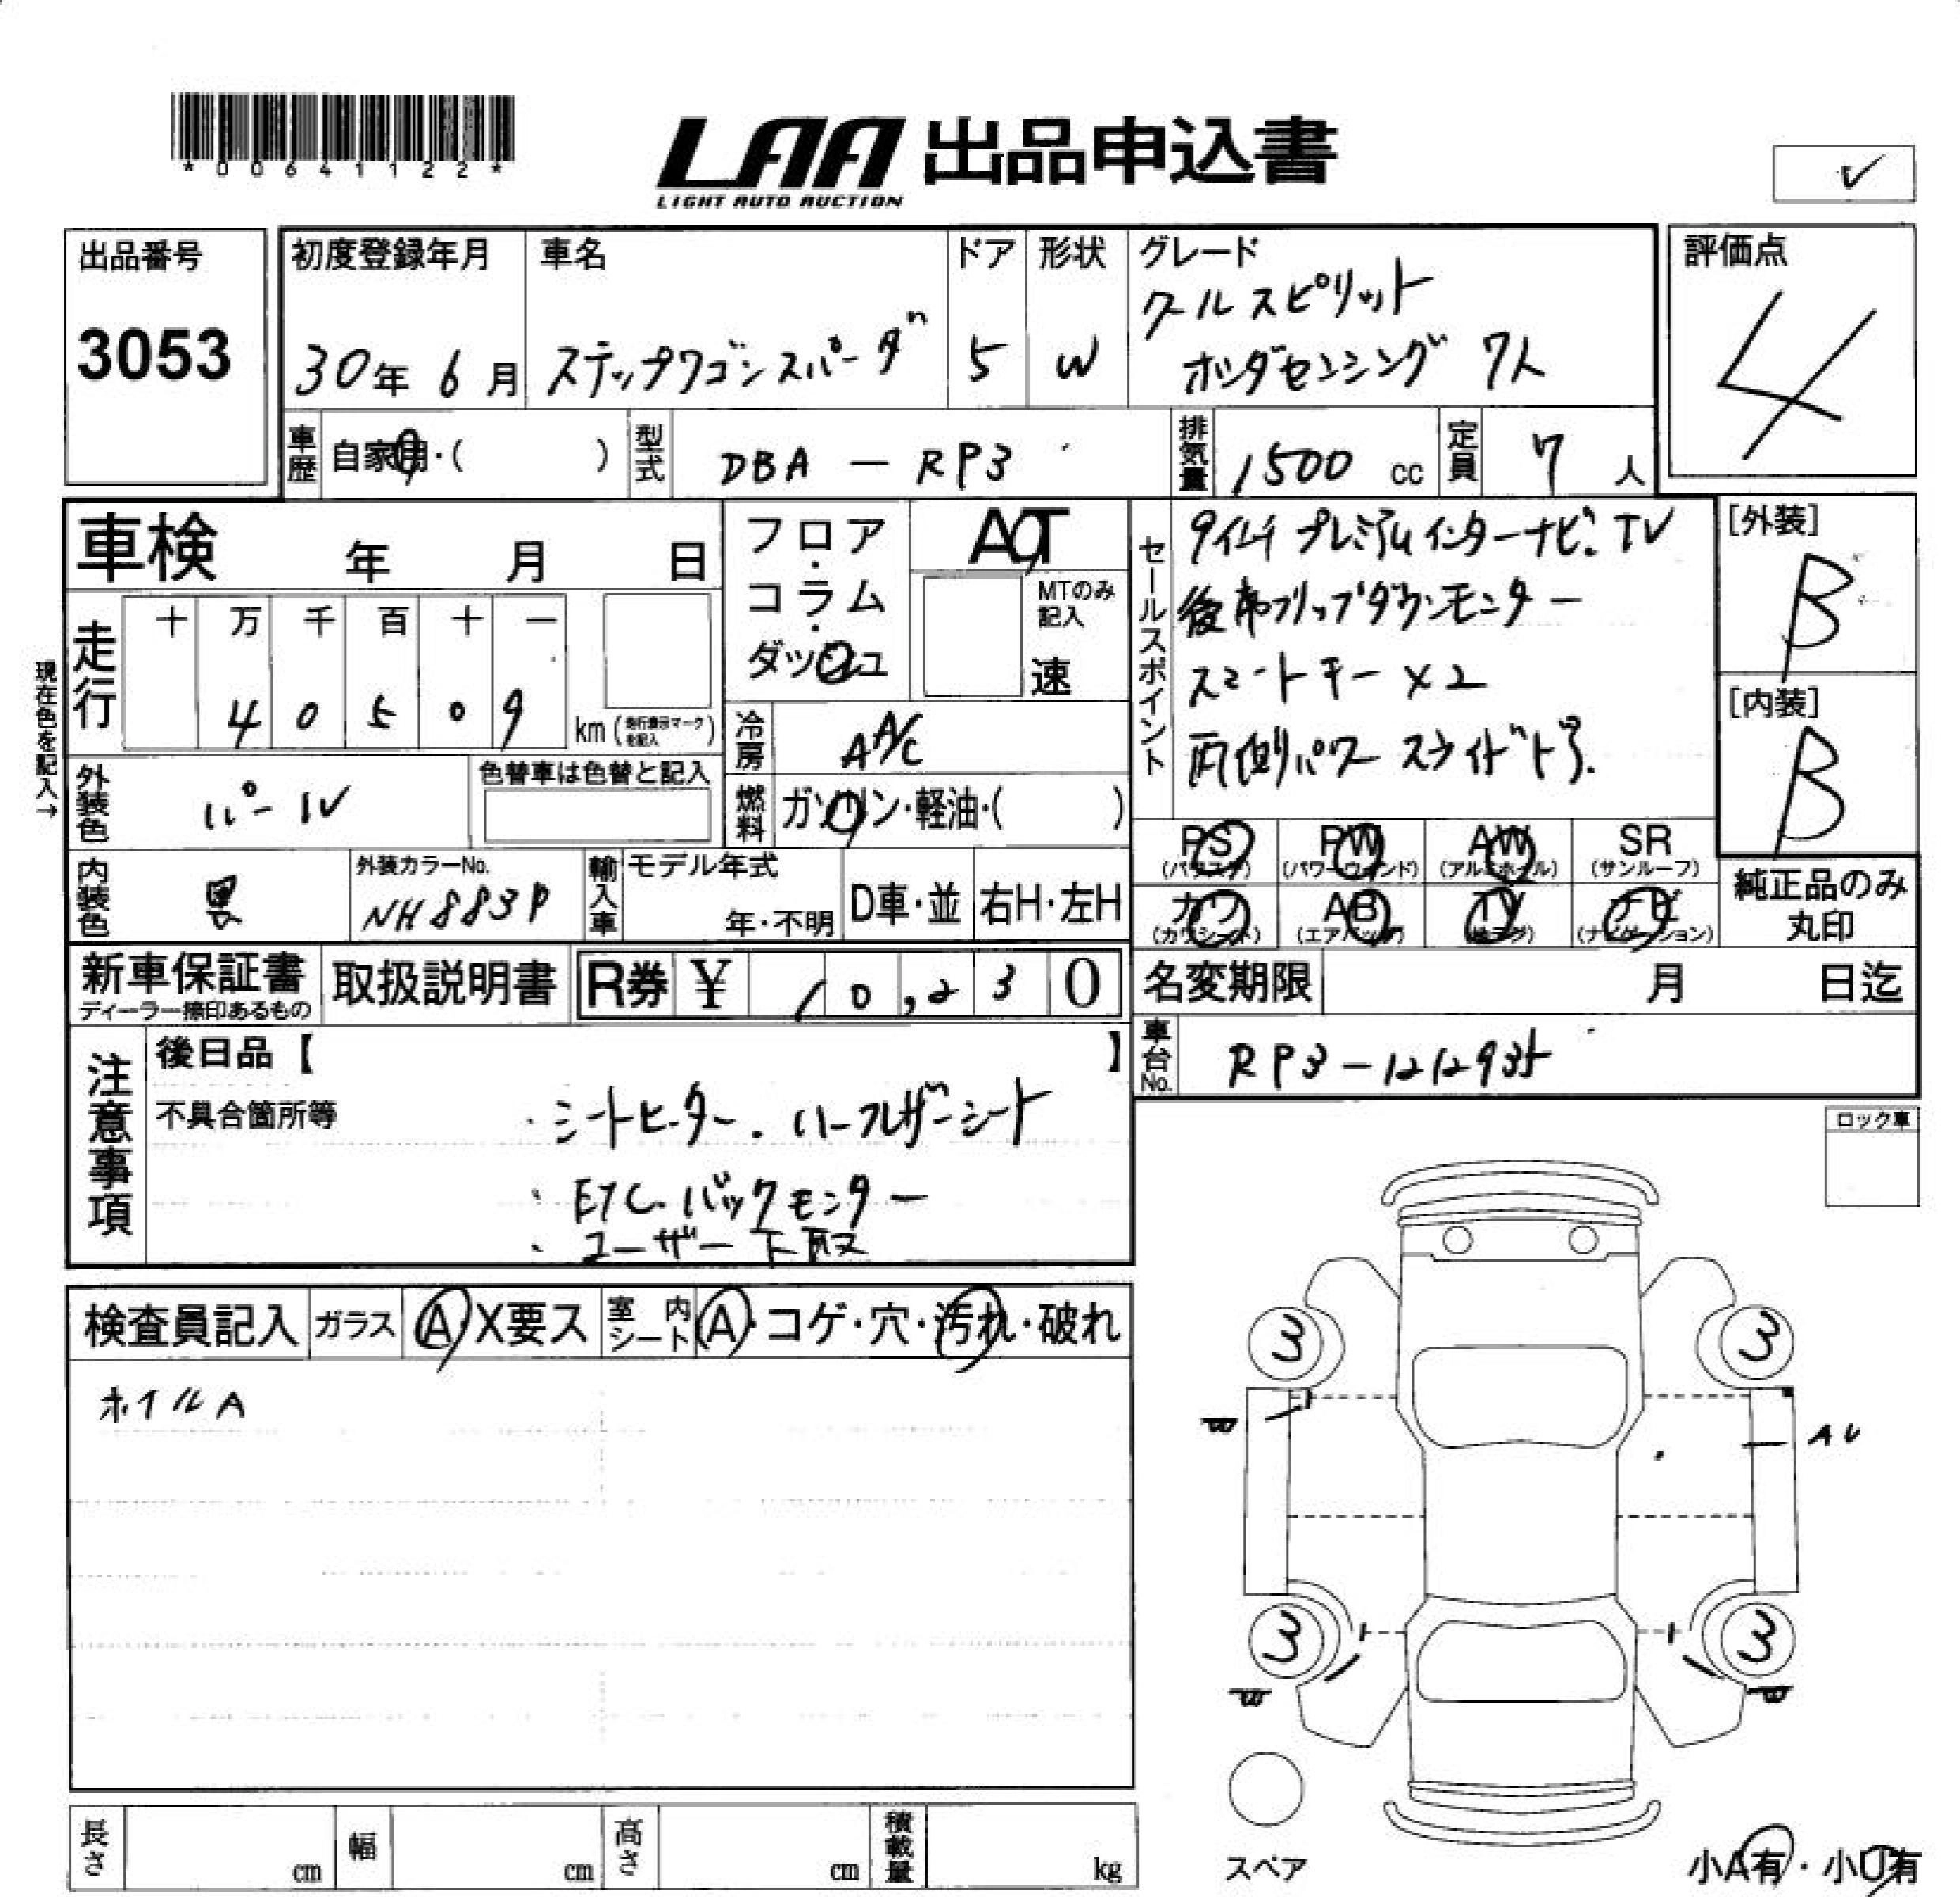 *00641122*
LAA 出品申込書
LIGHT AUTO AUCTION
✓
出品番号
3053
初度登録年月
30年 6月
車名
ステップワゴンスパーダ
ドア
5
形状
W
グレード
クールスピリット
ホンダセンシング 7人
評価点
4
車歴 自家用・( )
型式 DBA - RP3
排気量 1500 cc
定員 7 人
車検 年 月 日
フロア・コラム・ダッシュ
AT
MTのみ記入
速
セールスポイント
9インチ プレミアムインターナビ. TV
後席フリップダウンモニター
スマートキー×2
両側パワースライドドア.
[外装]
B
[内装]
B
現在色を記入→
走行
十 万 千 百 十 一
4 0 5 0 9
km (走行表示マークを記入)
冷房 AA/C
燃料 ガソリン・軽油・( )
外装色 パール
色替車は色替と記入
内装色 黒
外装カラーNo.
NH883P
輸入車
モデル年式
年・不明
D車・並
右H・左H
PS (パワステ)
PW (パワーウィンド)
AW (アルミホイール)
SR (サンルーフ)
カワ (カワシート)
AB (エアバッグ)
TV
ナビ (ナビゲーション)
純正品のみ丸印
新車保証書
ディーラー捺印あるもの
取扱説明書
R券 ¥ 10,230
名変期限 月 日迄
車台No. RP3-1212935
注意事項
後日品【 】
不具合箇所等
・シートヒーター. ハーフレザーシート
・ETC. バックモニター
・ユーザー下取
ロック車
検査員記入
ガラス A・X要ス
室内シート A・コゲ・穴・汚れ・破れ
ホイルA
3
3
W
AU
3
3
W
W
スペア
小A有・小U有
長さ cm
幅 cm
高さ cm
積載量 kg